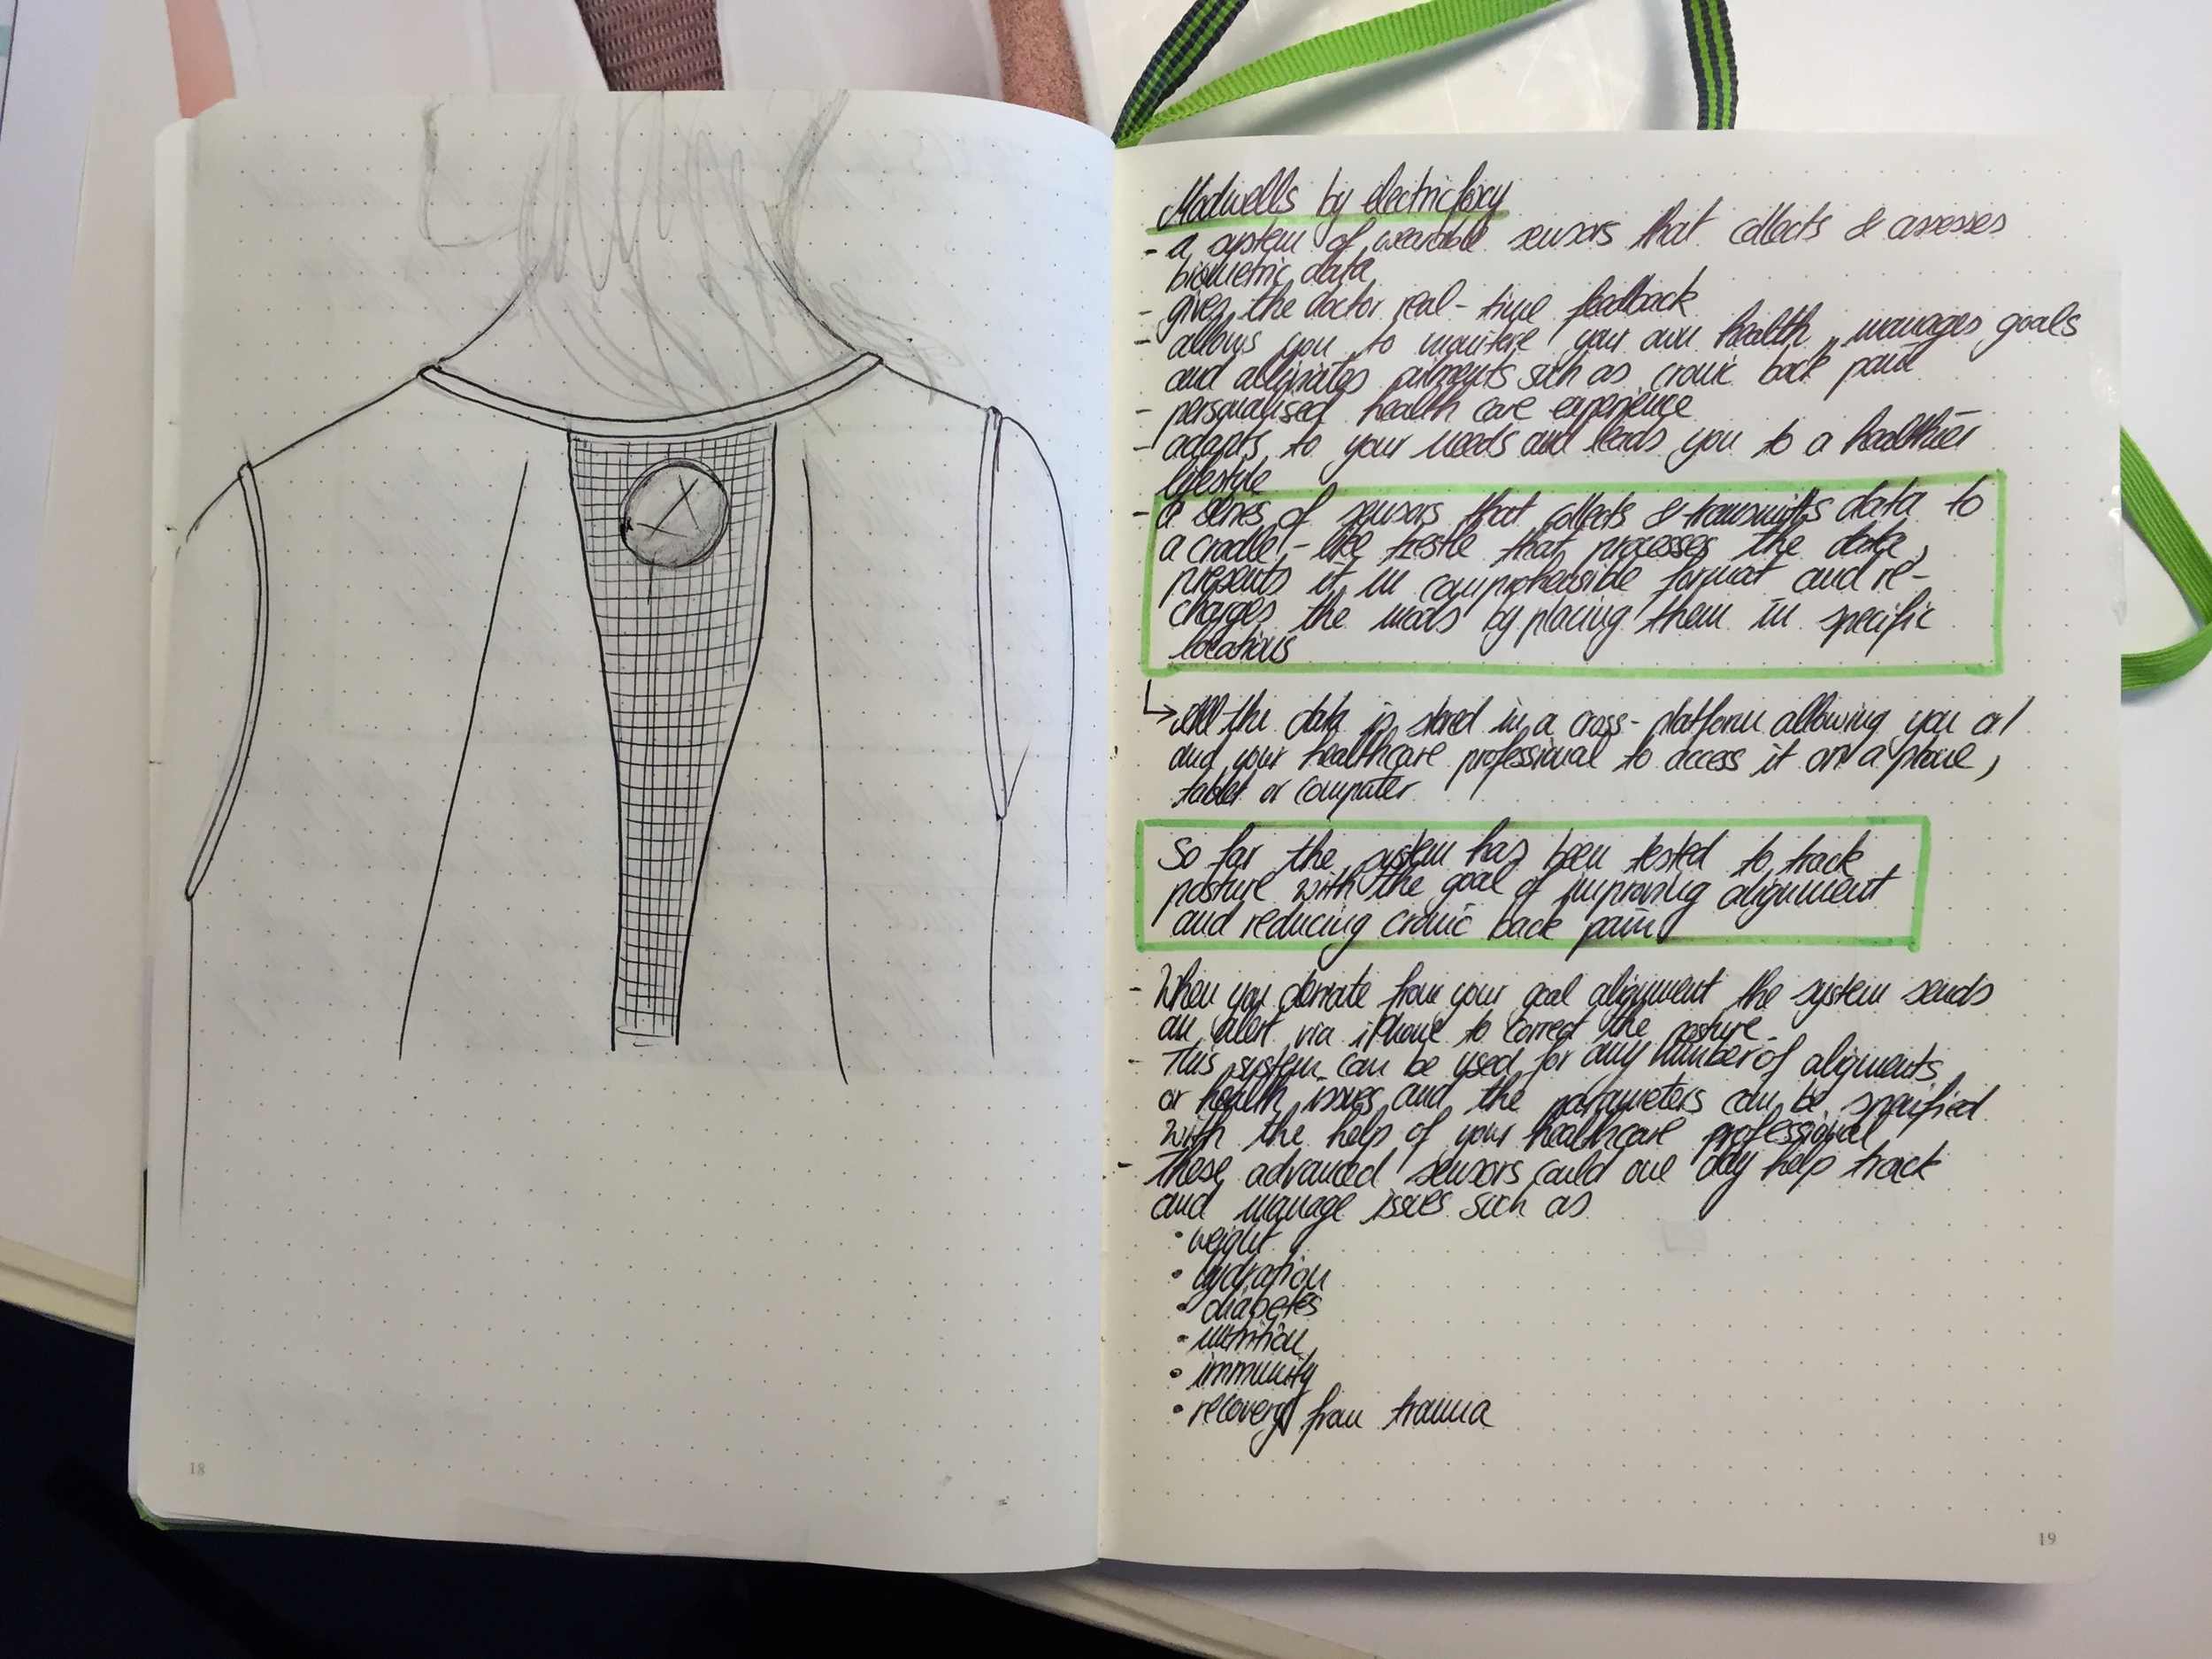 Modwells by electricfoxy
- a system of wearable sensors that collects & assesses
biometric data
- gives the doctor real-time feedback
- allows you to monitore your own health, manages goals
and alliviates ailments such as cronic back pain
- personalised health care experience
- adapts to your needs and leads you to a healthier
lifestyle
- a series of sensors that collects & transmitts data to
a cradle-like trestle that processes the data,
presents it in comprehensible format and re-
charges the mods by placing them in specific
locations
↳ All the data is stored in a cross-platform allowing you or/
and your healthcare professional to access it on a phone,
tablet or computer
So far the system has been tested to track
posture with the goal of improving alignment
and reducing cronic back pain
- When you deviate from your goal alignment the system sends
an alert via iPhone to correct the posture
- This system can be used for any number of aligments
or health issues and the parameters can be specified
with the help of your healthcare professional
- These advanced sensors could one day help track
and manage issues such as
• weight
• hydration
• diabetes
• nutrition
• immunity
• recovery from trauma
18
19